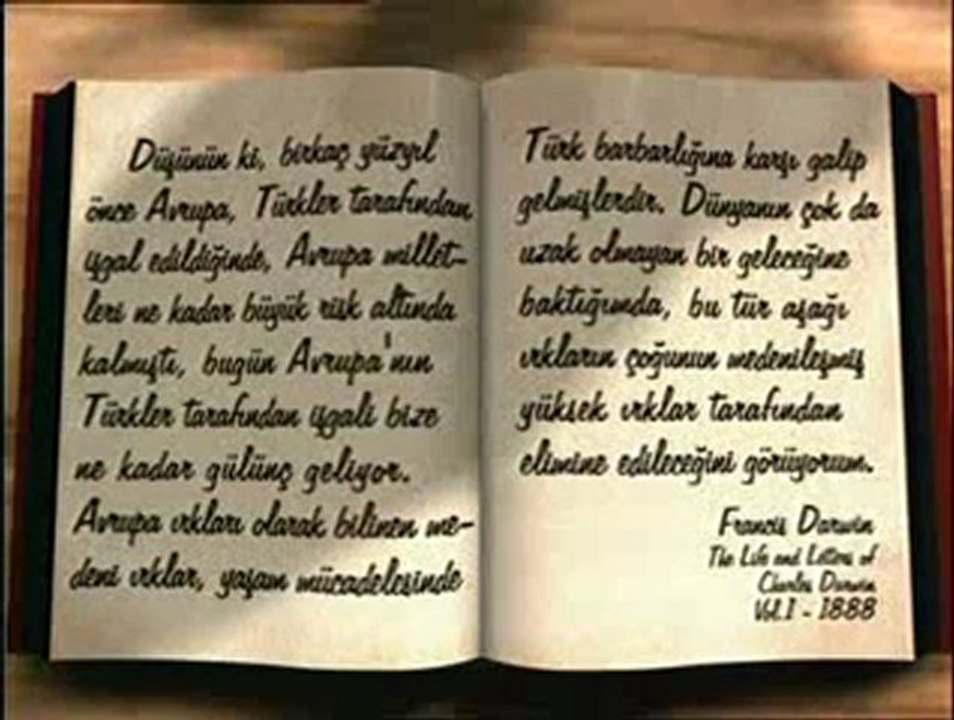 Düşünün ki, birkaç yüzyıl
önce Avrupa, Türkler tarafından
işgal edildiğinde, Avrupa millet-
leri ne kadar büyük risk altında
kalmıştı, bugün Avrupa'nın
Türkler tarafından işgali bize
ne kadar gülünç geliyor.
Avrupa ırkları olarak bilinen me-
deni ırklar, yaşam mücadelesinde
Türk barbarlığına karşı galip
gelmişlerdir. Dünyanın çok da
uzak olmayan bir geleceğine
baktığımda, bu tür aşağı
ırkların çoğunun medenileşmiş
yüksek ırklar tarafından
elimine edileceğini görüyorum.
Francis Darwin
The Life and Letters of
Charles Darwin
Vol.I - 1888